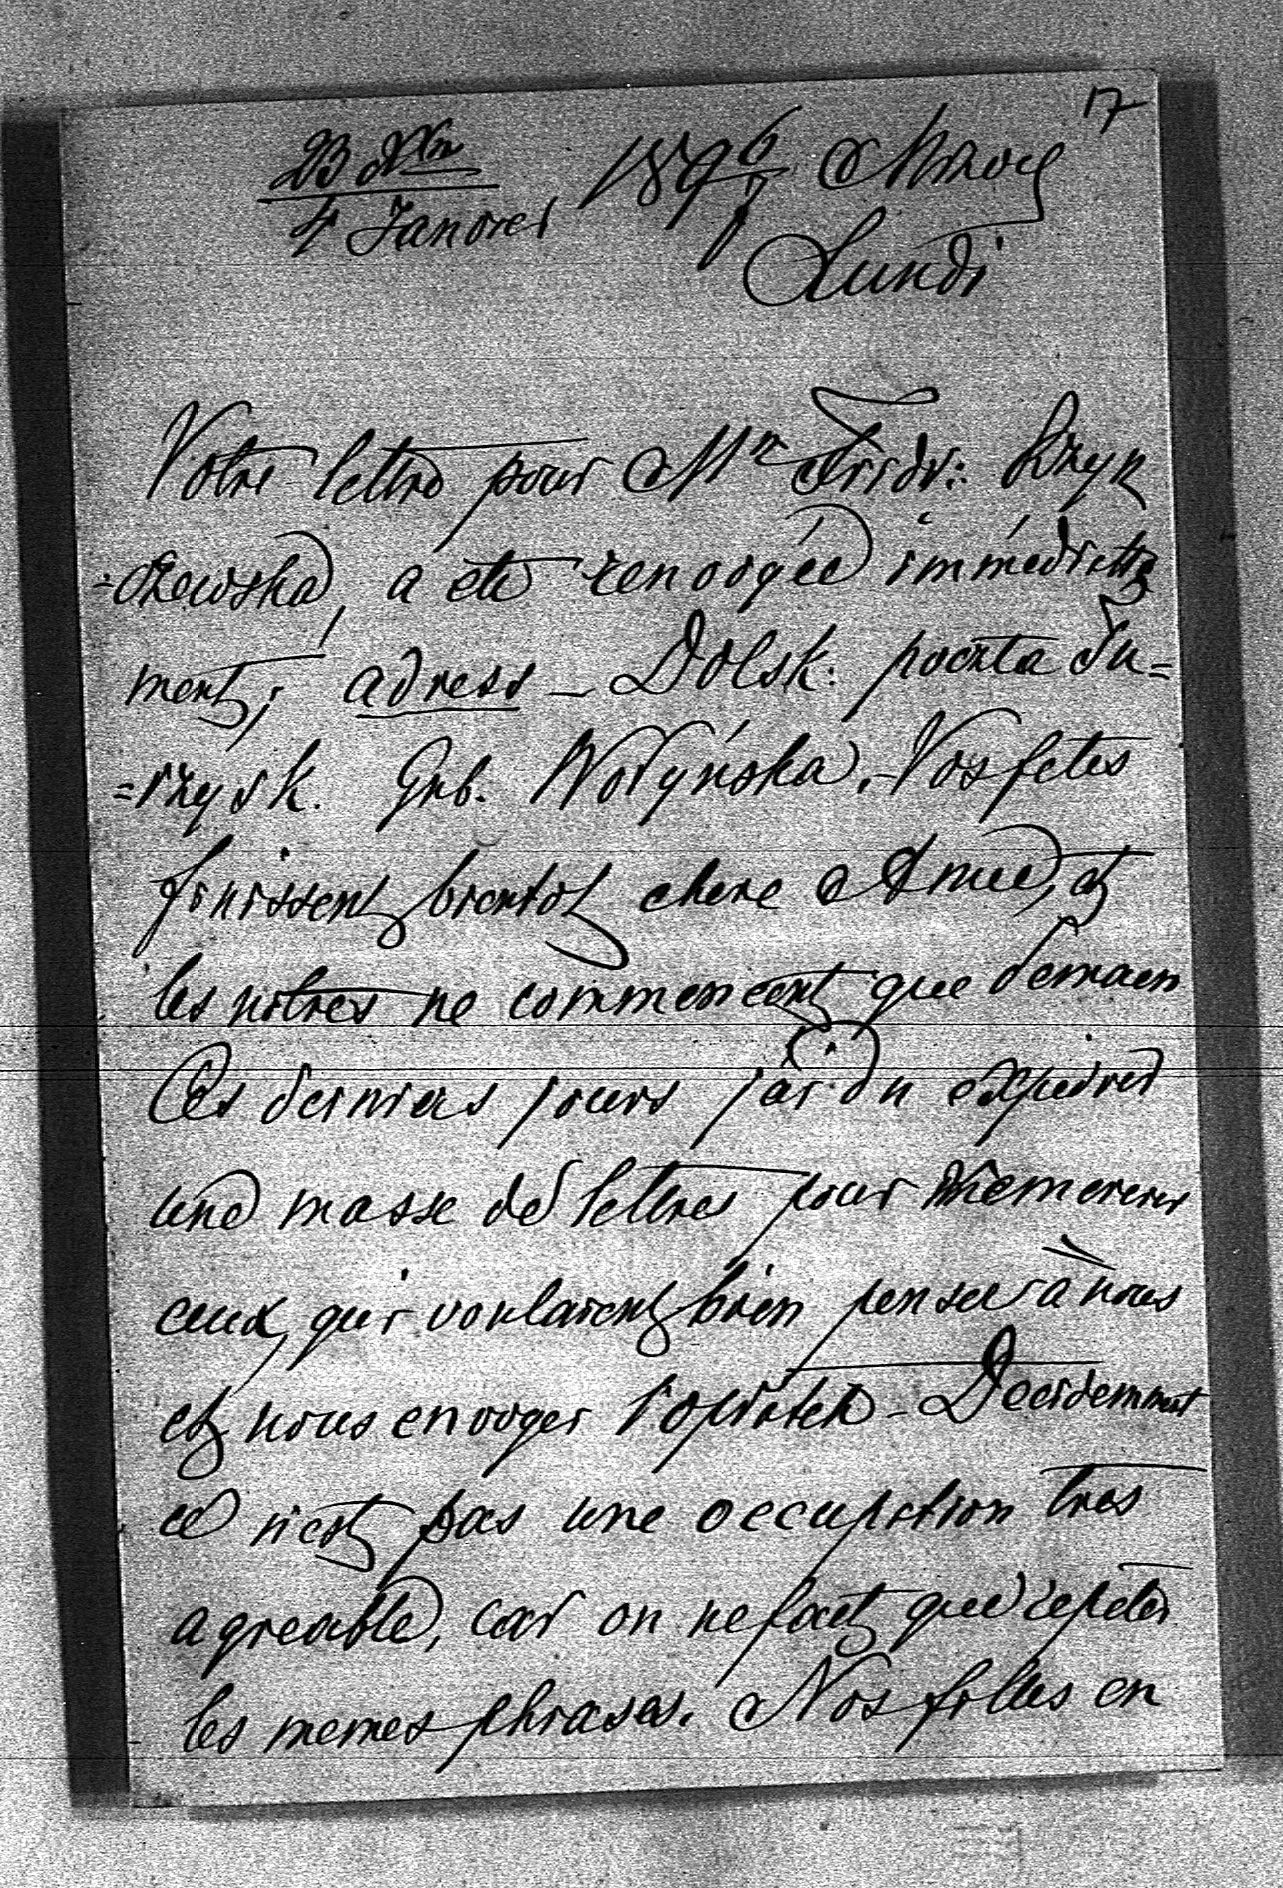 17
23 Xbr 1896 Mroży
4 Janvier 7
Lundi
Votre lettre pour Mr Fridr:
=czowska, a eté renvoyée immédiatte
ment, adress – Dolsk. poczta Tu=
=rzysk. Gub. Wołyńska. – Vos fetes
finissent bientot chere Amie, et
les notres ne commencent que demain
Ces derniers jours j'ai du expedier
une masse de lettres pour remercier
ceux, qui voulaient bien penser à nous
et nous envoyer l'opłatek – Decidemment
ce n'est pas une occupation tres
agreable, car on ne fait que repeter
les memes phrases. Nos filles en